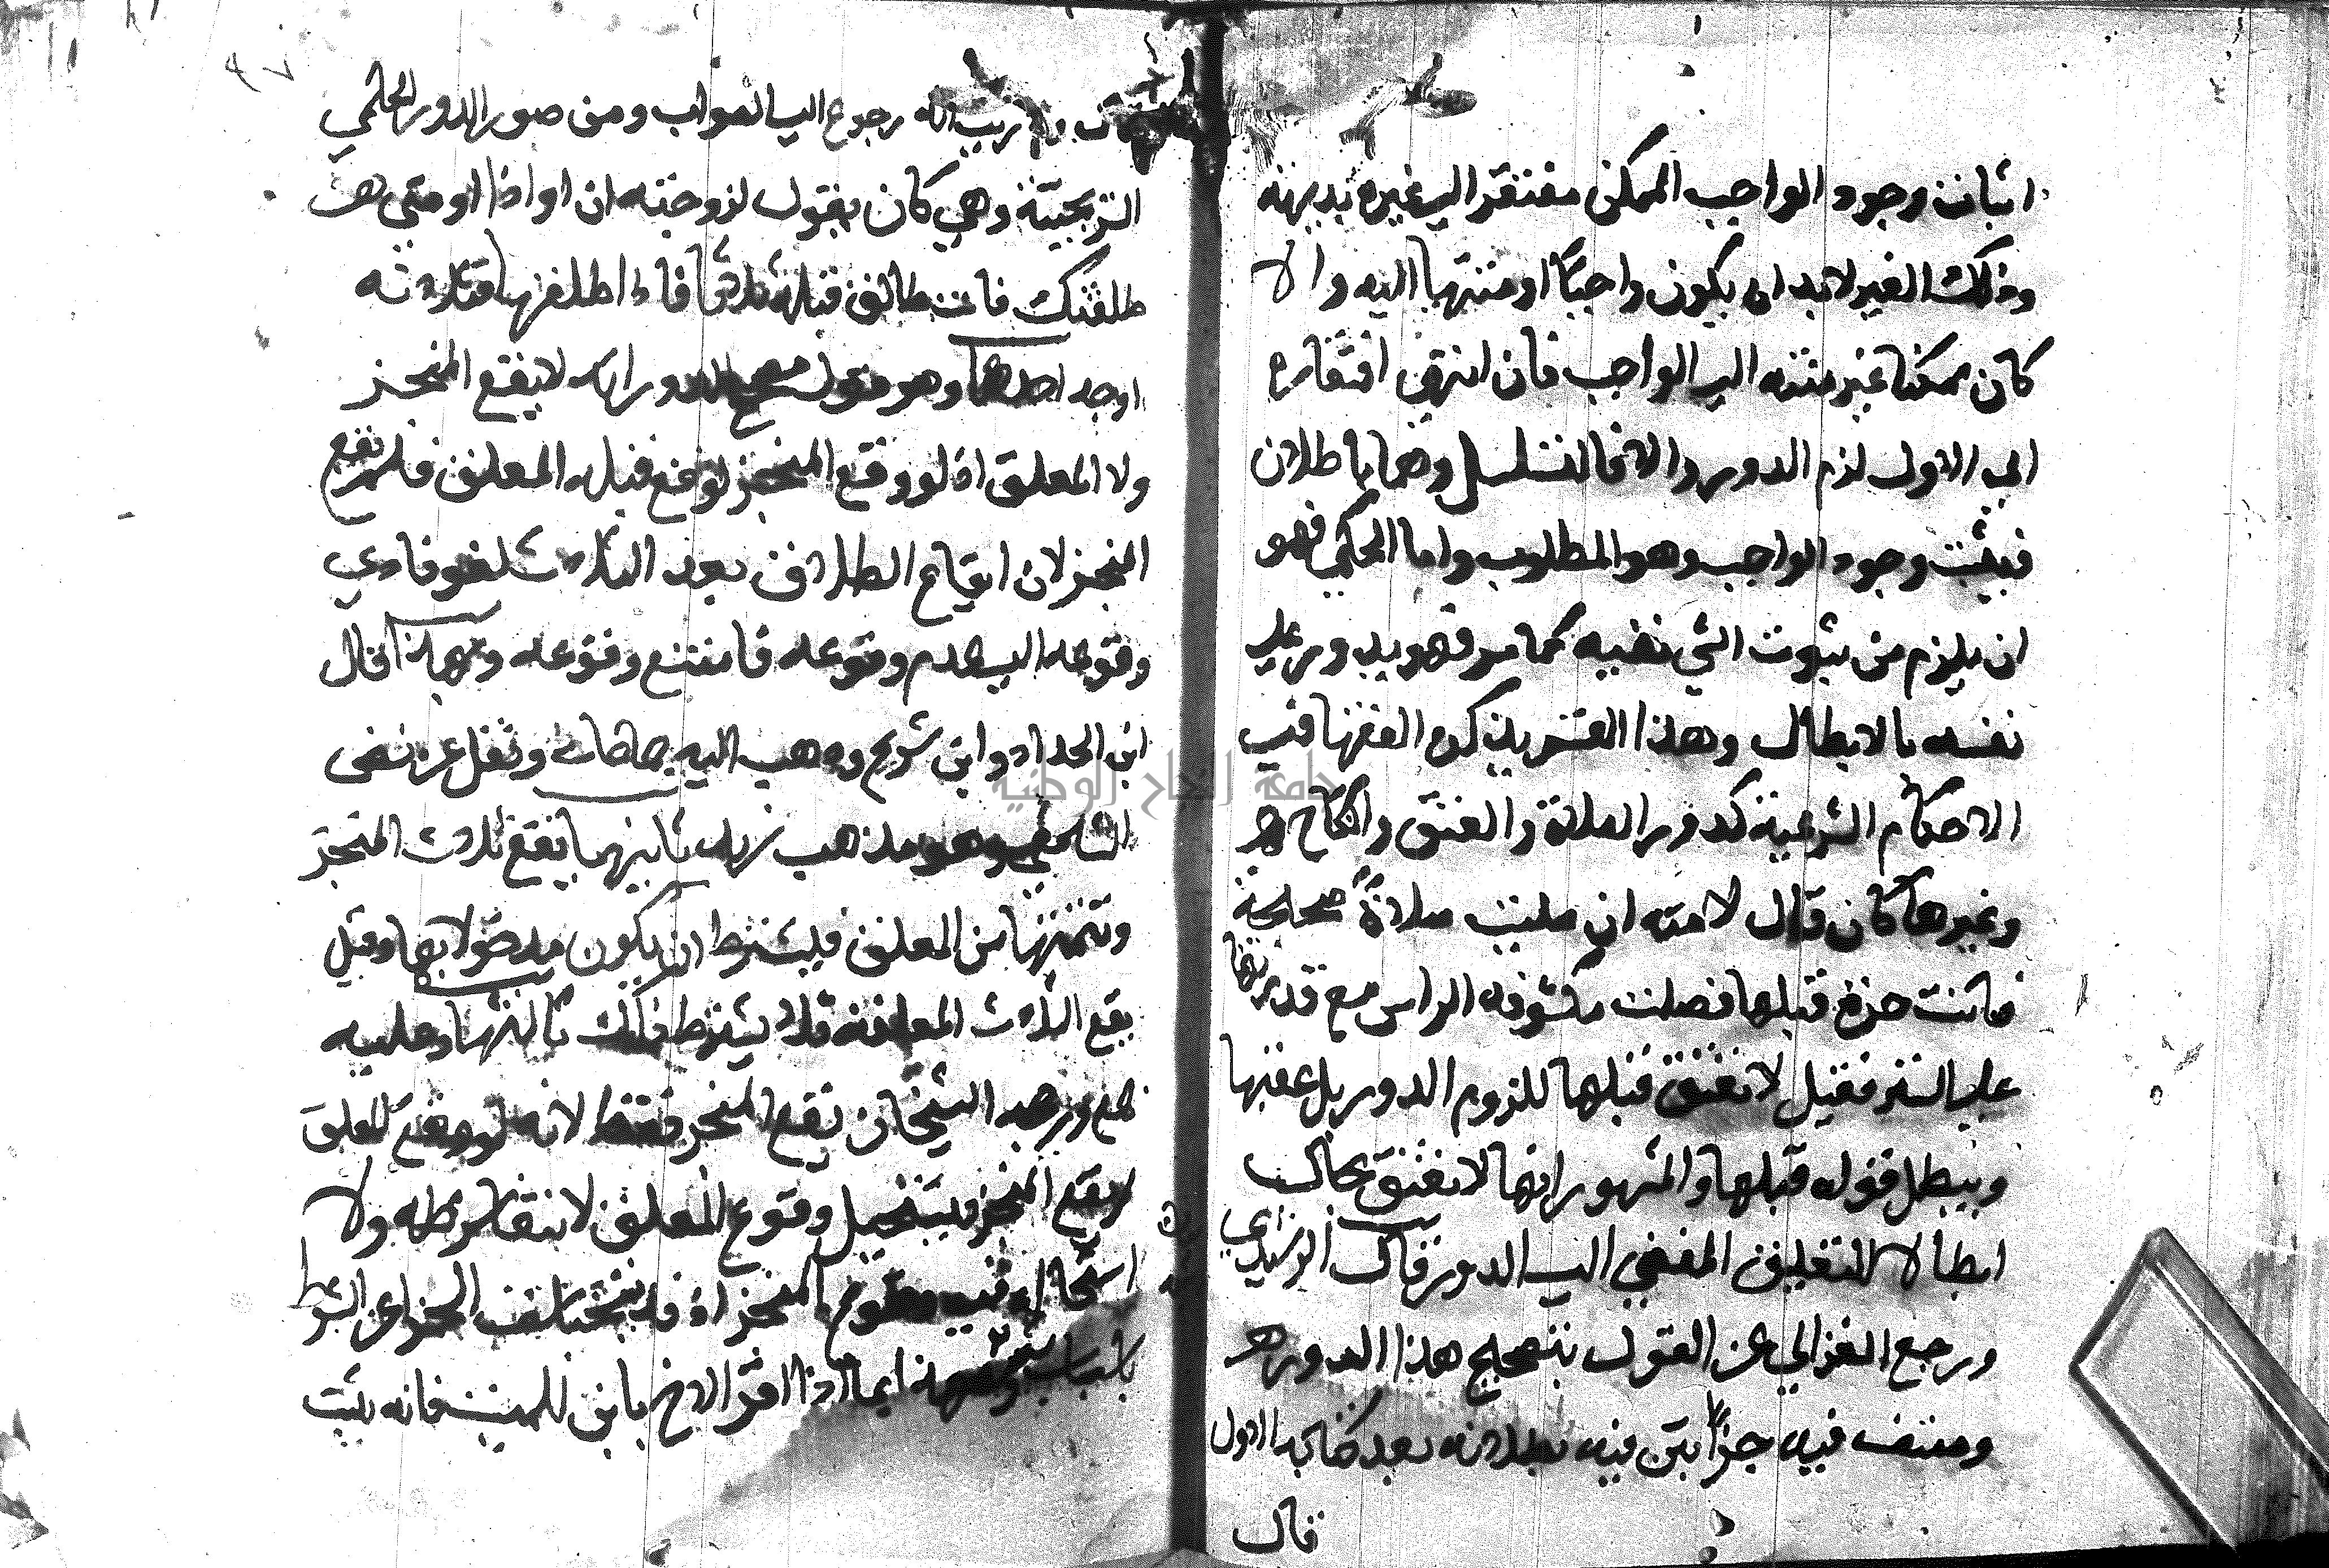 اثبات وجود الواجب الممكن مفتقر الي غيره بديهة
وذلك الغير لابد ان يكون واجبا او منتهيا اليه والا
كان ممكنا غير منته الي الواجب فان انتهي افتقاره
الي الاول لزم الدور والا فالتسلسل وهما باطلان
فيثبت وجود الواجب وهو المطلوب واما الحكمي فهو
ان يلزم من ثبوت الشي نفيه كما مر فهو يدور علي
نفسه بالابطال وهذا القسم يذكره الفقها في
الاحكام الشرعية كدور الصلاة والعتق والنكاح
وغيرها كان قال لامته ان صليت صلاة صحيحة
فانت حرة قبلها فصلت مكشوفة الراس مع قدرتها
علي الستر فقيل لا تعتق قبلها للزوم الدور بل عقبها
ويبطل قوله قبلها والمشهور انها لا تعتق بحال
ابطالا للتعليق المفضي الي الدور قال الرشيدي
ورجع الغزالي عن القول بتصحيح هذا الدور
وصنف فيه جزأ بين فيه بطلانه بعد كتابه الاول
قال
رجوع الي الصواب ومن صور الدور الحكمي
السريجية وهي كان يقول لزوجته ان او اذا او متي
طلقتك فانت طالق قبله ثلاثا فاذا طلقها فثلاثة
اوجه احدها وهو قول مصحح الدور انه لا يقع المنجز
ولا المعلق اذ لو وقع المنجز لوقع قبله المعلق فلم يقع
المنجز لان ايقاع الطلاق بعد الثلاث لغو فادي
وقوعه الي عدم وقوعه فامتنع وقوعه وبهذا قال
ابن الحداد وابن سريج وذهب اليه جماعات ونقل عن نص
الشافعي وهو مذهب زيد ثانيها يقع ثلاث المنجز
وتتمتها من المعلق فيشترط ان يكون مدخولا بها وقيل
يقع الثلاث المعلقة فلا يشترط ذلك ثالثها وعليه
الشيخان يقع المنجز فقط لانه لو وقع المعلق
لم يقع المنجز فيستحيل وقوع المعلق لانتفا شرطه ولا
استحالة في وقوع المنجز اذ قد يتخلف الجزا عن الشرط
باسباب اذا اقر الاخ بابن للميت فانه يثبت
جامعة النجاح الوطنية